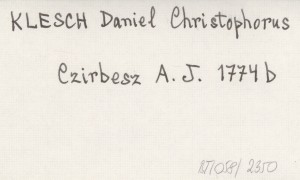 KLESCH Daniel Christophorus
Czirbesz A. J. 1774 b